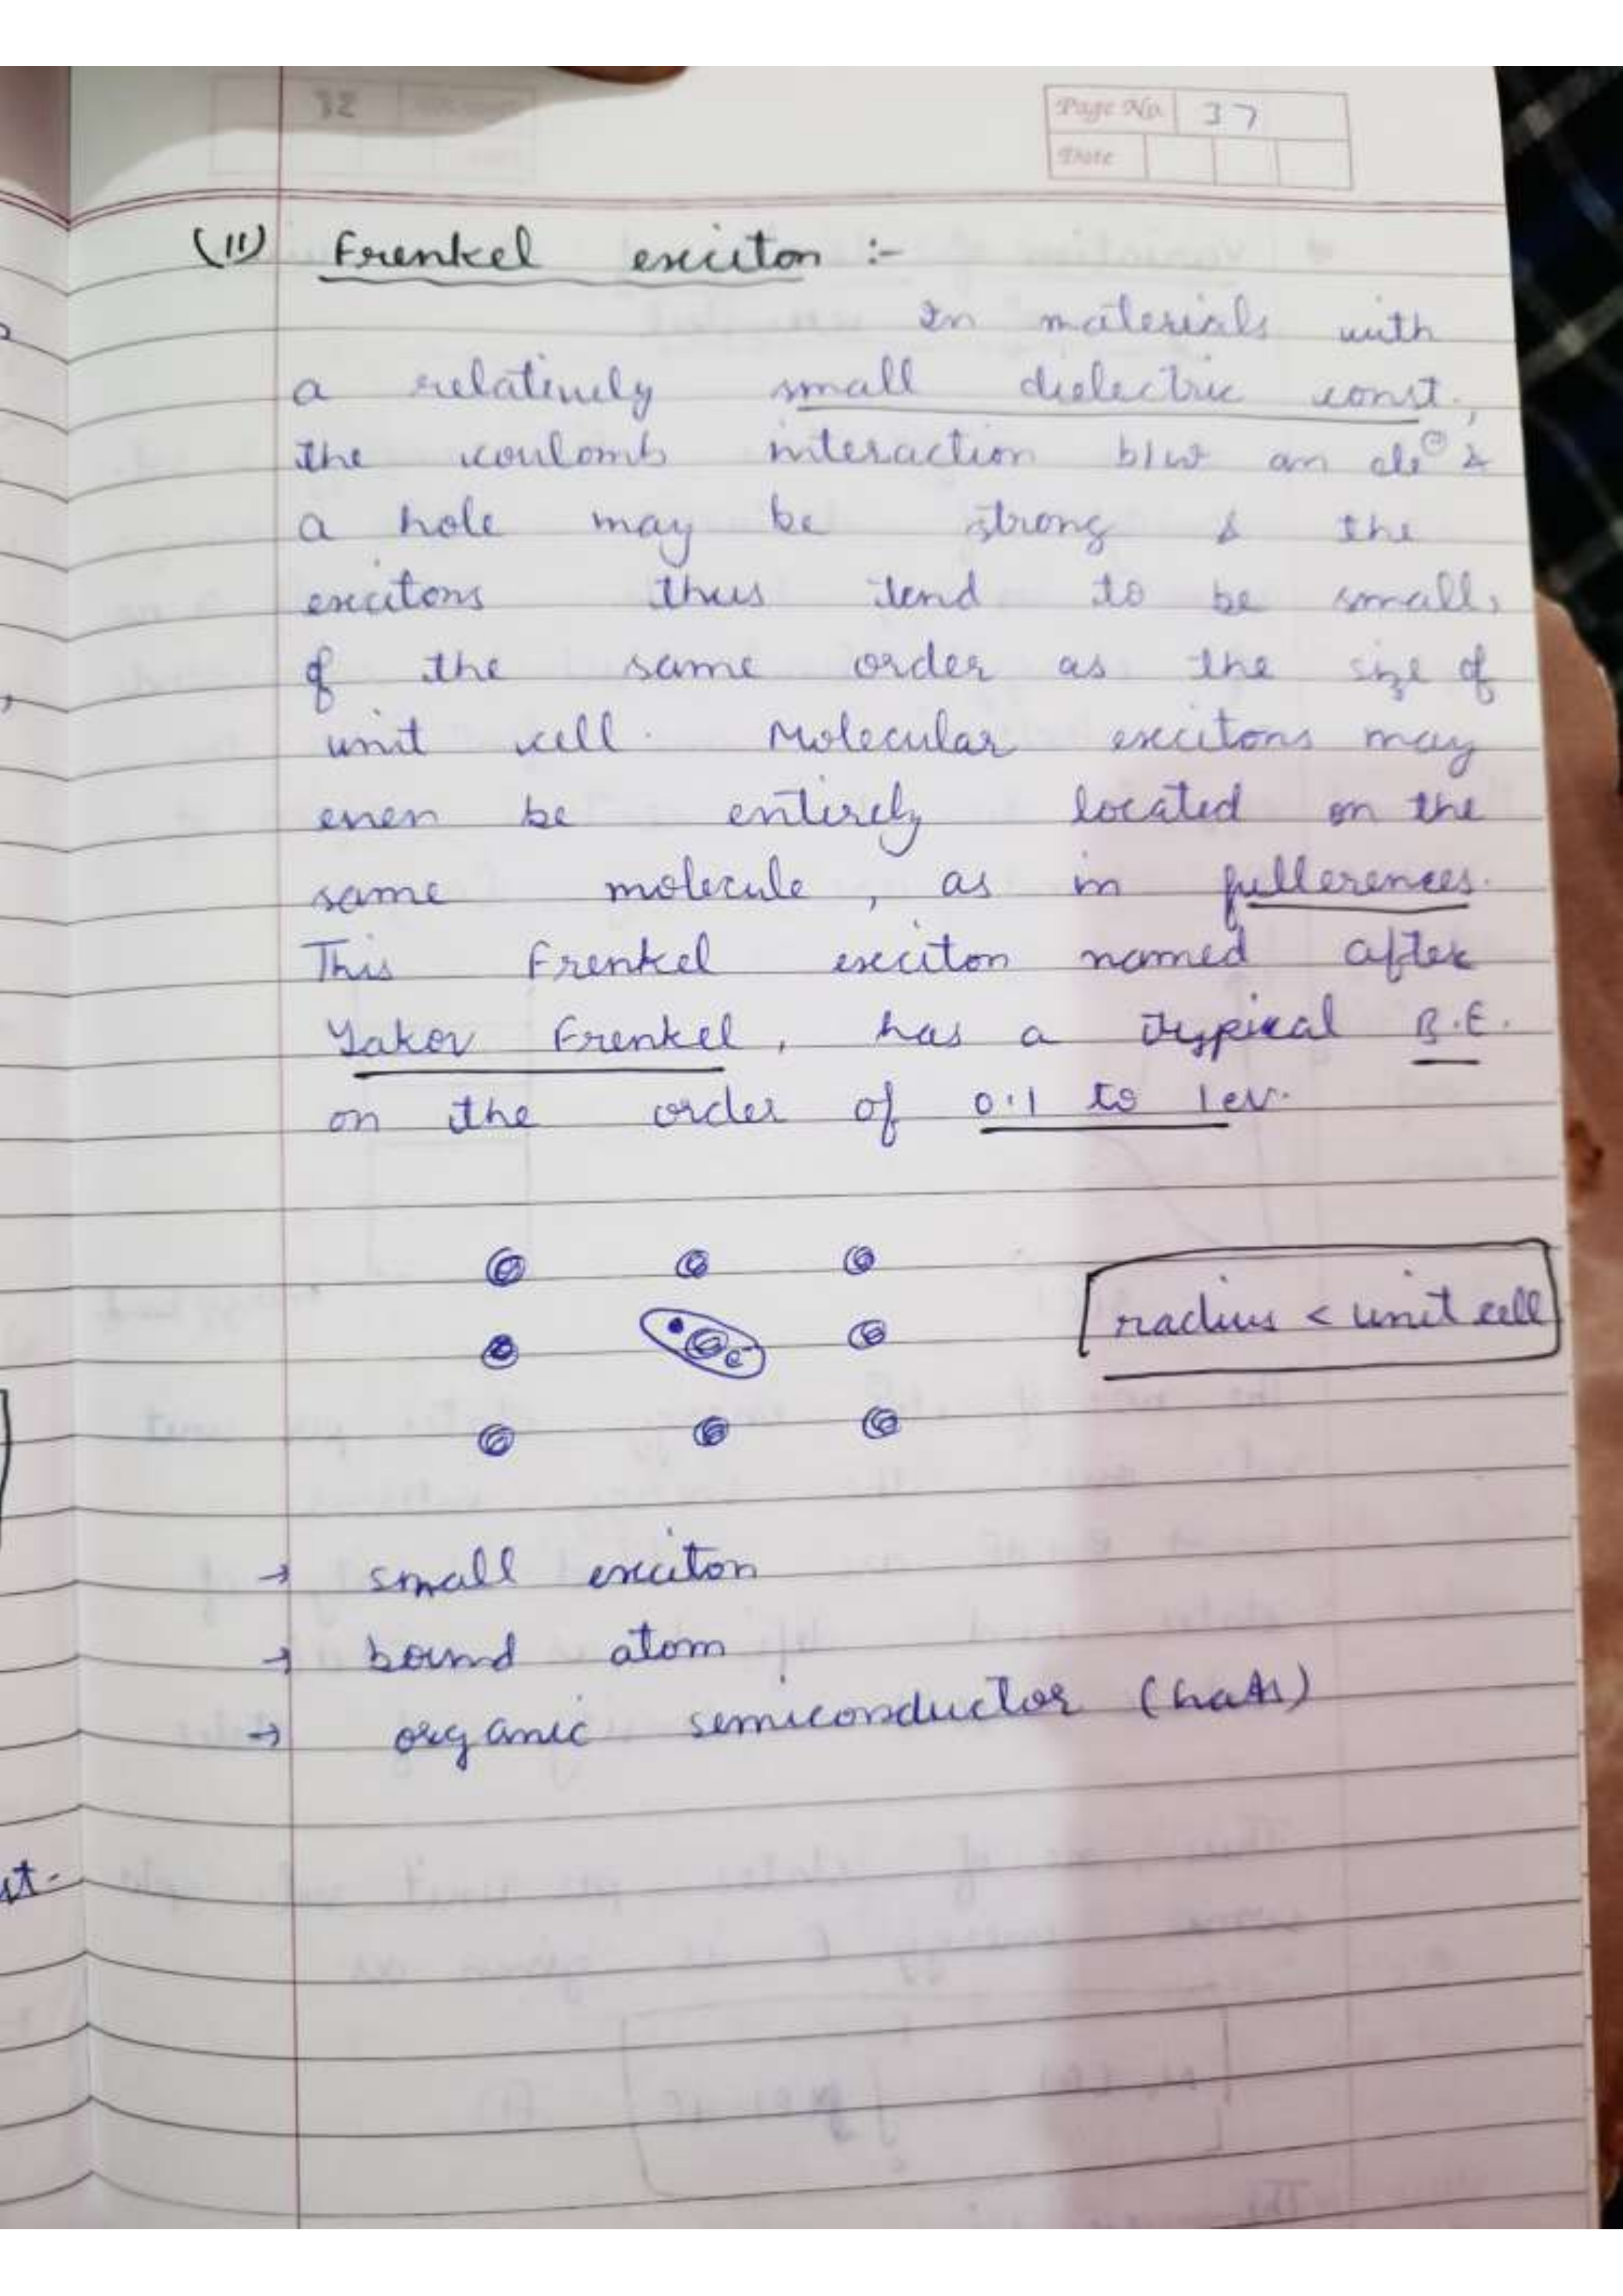 Page No. 37
Date
(11) Frenkel exciton :-
In materials with
a relatively small dielectric const.,
the coulomb interaction b/w an ele⊖ &
a hole may be strong & the
excitons thus tend to be small,
of the same order as the size of
unit cell. Molecular excitons may
even be entirely located on the
same molecule, as in fullerences.
This Frenkel exciton named after
Yakov Frenkel, has a typical B.E.
on the order of 0.1 to 1ev.
radius < unit cell
e-
→ small exciton
→ bound atom
→ organic semiconductor
st-